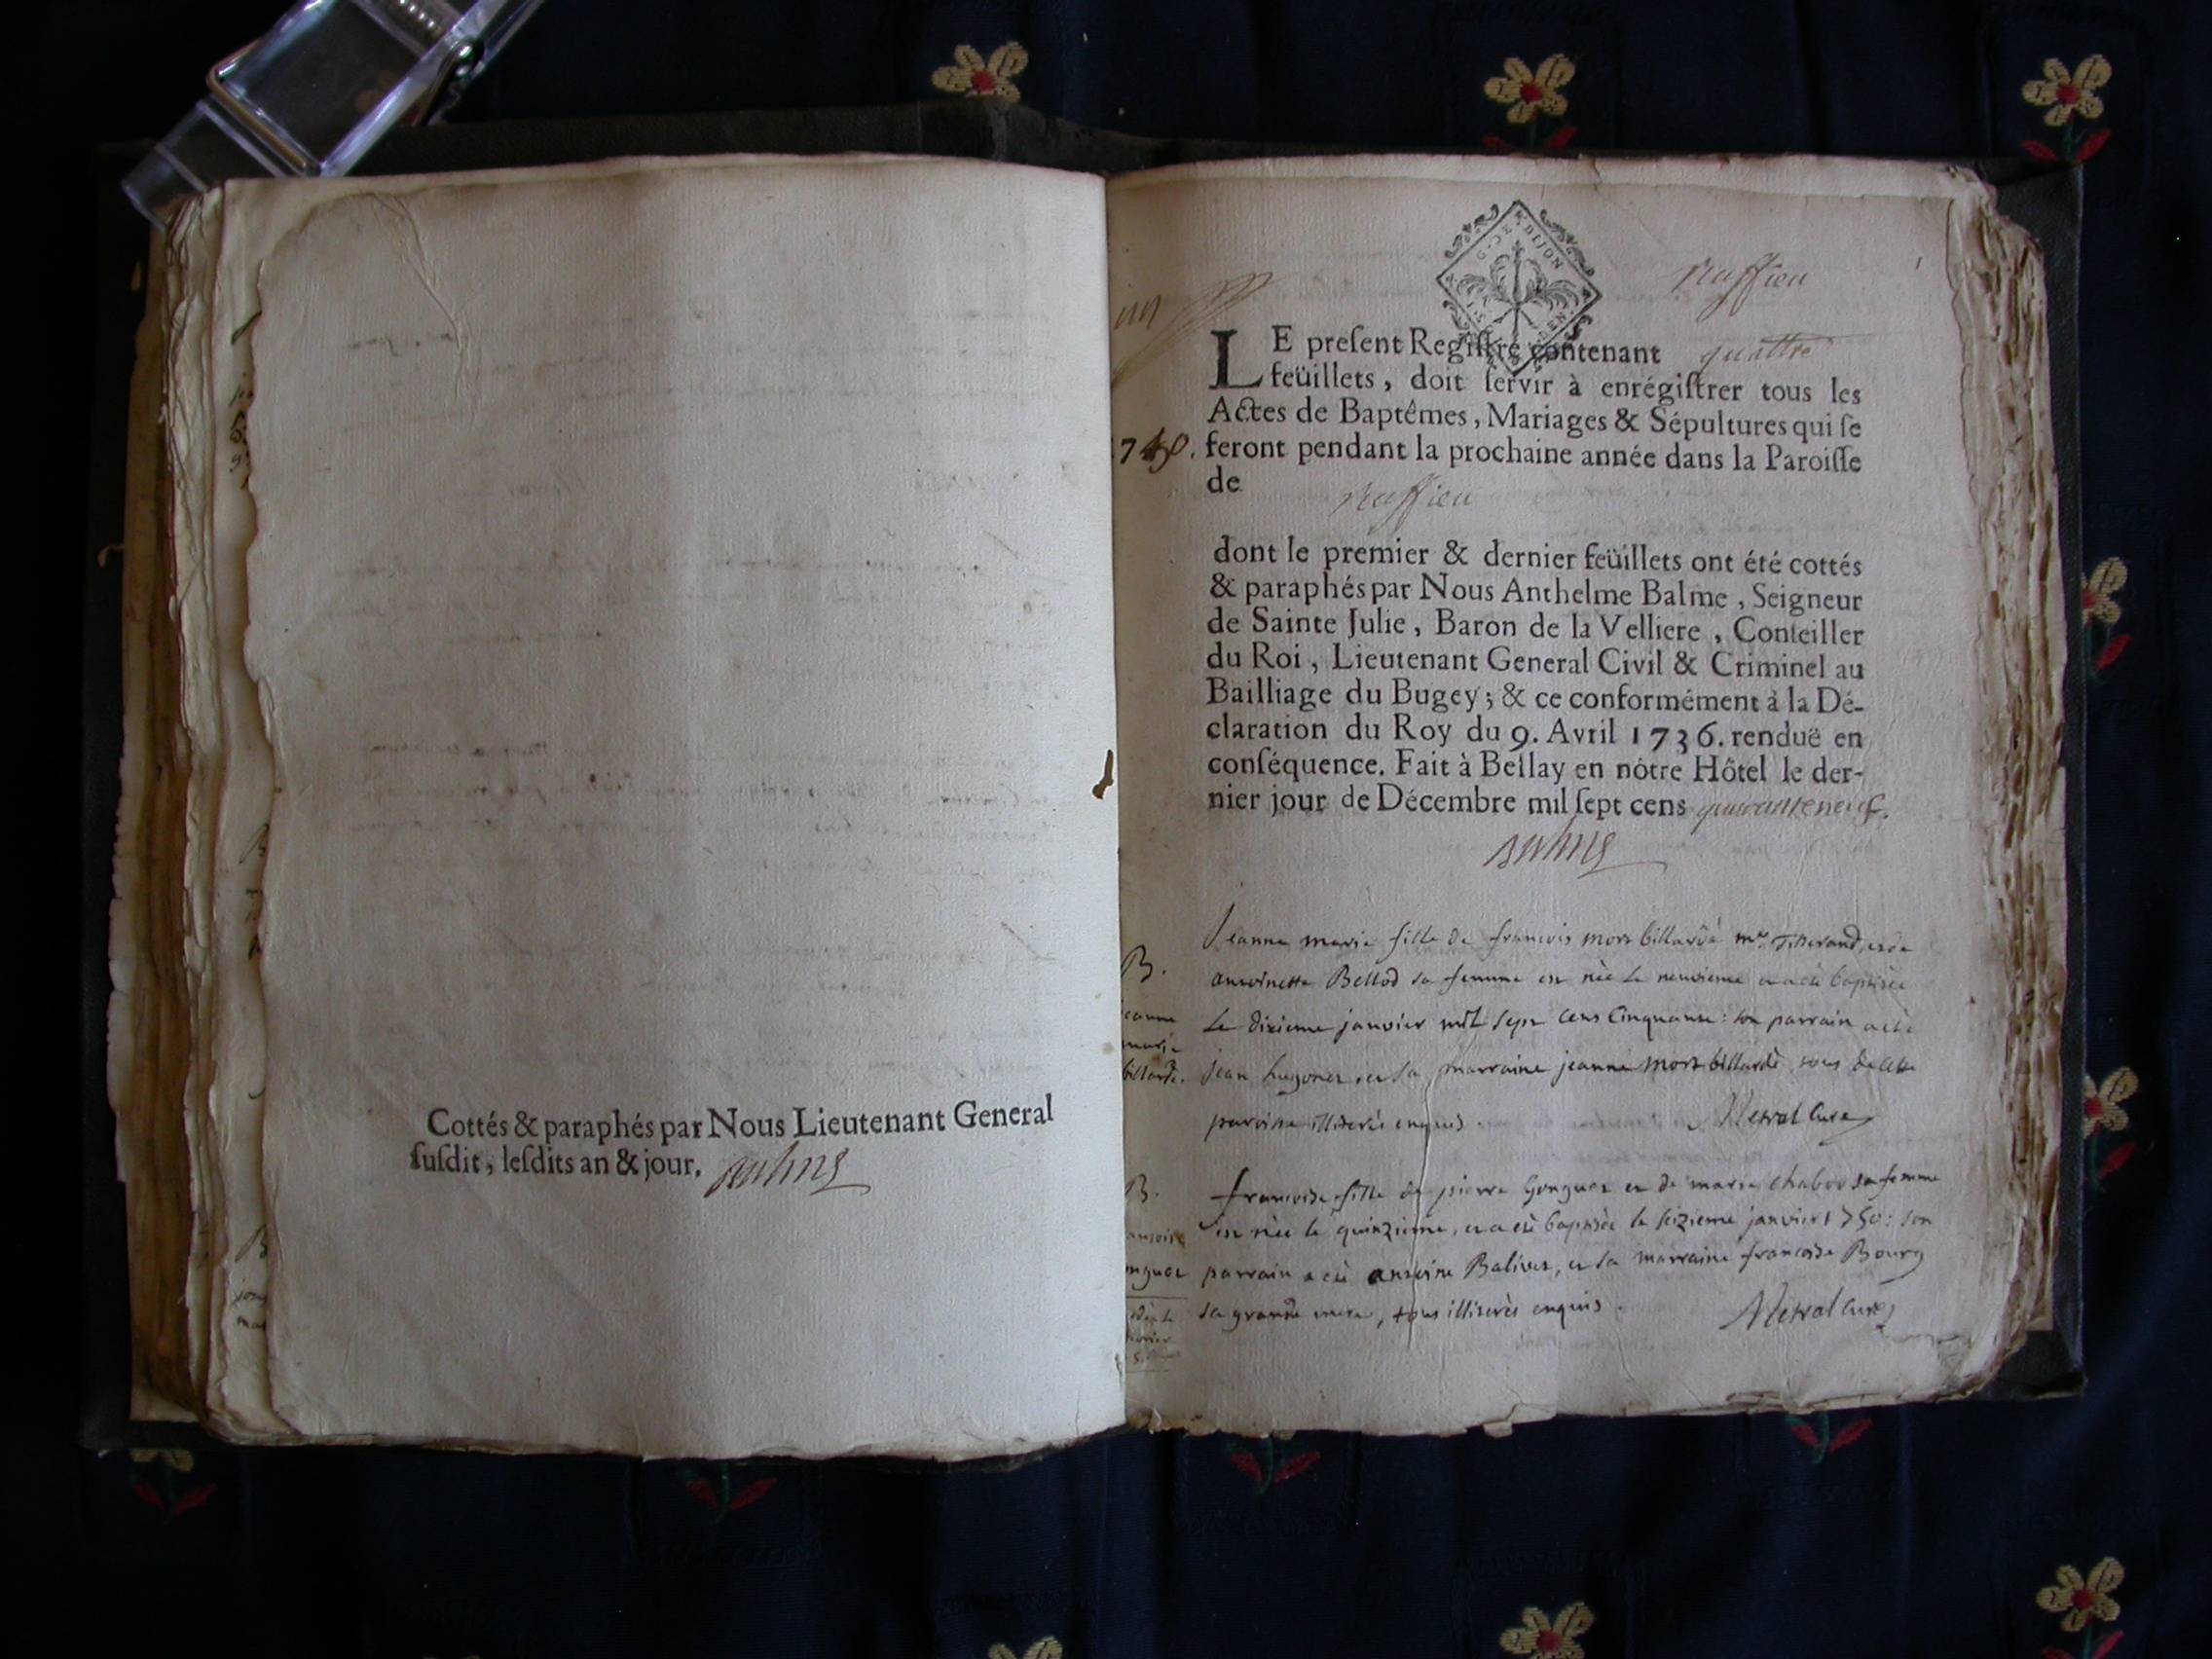 Cottés & paraphés par Nous Lieutenant General
ſuſdit, leſdits an & jour.
G. DE DIJON
Ruffieu
LE preſent Regiſtre contenant quattre
feüillets, doit ſervir à enrégiſtrer tous les
Actes de Baptêmes, Mariages & Sépultures qui ſe
feront pendant la prochaine année dans la Paroiſſe
de Ruffieu
dont le premier & dernier feüillets ont été cottés
& paraphés par Nous Anthelme Balme, Seigneur
de Sainte Julie, Baron de la Velliere, Conſeiller
du Roi, Lieutenant General Civil & Criminel au
Bailliage du Bugey; & ce conformément à la Dé-
claration du Roy du 9. Avril 1736. renduë en
conſéquence. Fait à Bellay en nôtre Hôtel le der-
nier jour de Décembre mil ſept cens quaranteneuf.
B.
jeanne
marie
billarde.
Jeanne marie fille de francois mort billardé me Tisserand, et de
antoinette Bellod sa femme est née le neuvieme et a eté baptisée
le dixieme janvier mil sept cens Cinquante: son parrain a eté
jean hugonet et sa marraine jeanne mort billardé tous de cette
paroisse illiterés enquis. Metral Curé
B.
francoise fille de pierre Gonguet et de marie chabov sa femme
est née le quinzieme, et a eté baptisée le seizieme janvier 1750: son
parrain a eté antoine Balivet, et sa marraine francoise Bourg
sa grande mere, tous illiterés enquis. Metral Curé